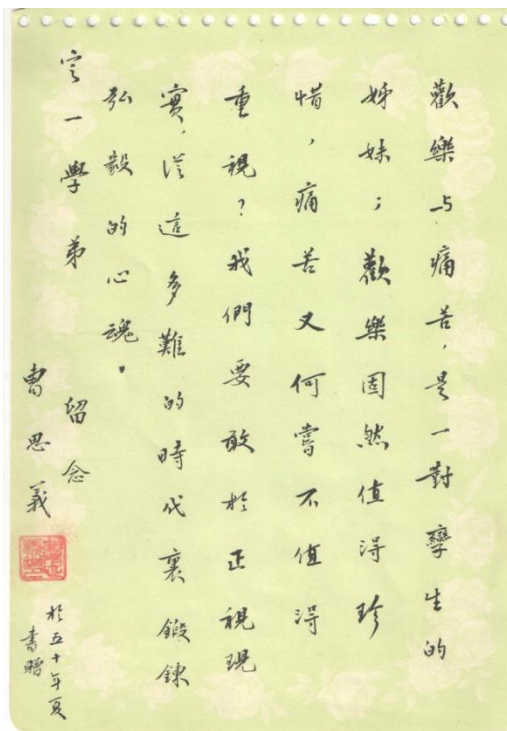 歡樂与痛苦，是一對孿生的
姊妹；歡樂固然值得珍
惜，痛苦又何嘗不值得
重視？我們要敢於正視現
實，從這多難的時代裏鍛鍊
弘毅的心魂。
定一學弟
留念
曹思義
於五十年夏
書贈